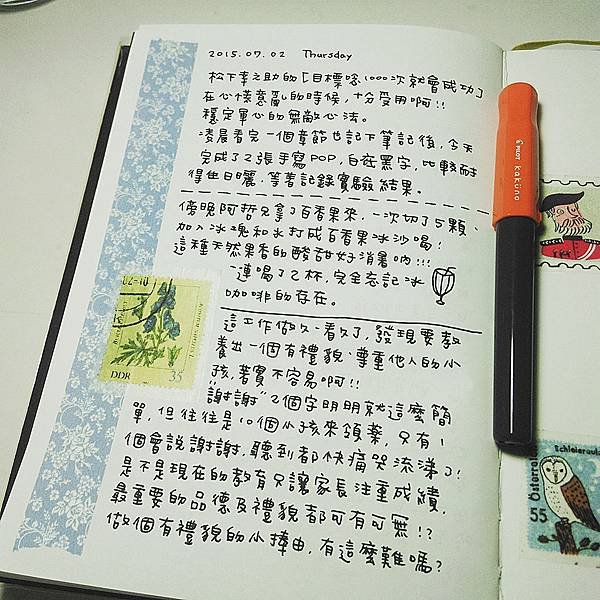 2015.07.02 Thursday
松下幸之助的「目標唸1000次就會成功」
在心慌意亂的時候，十分受用啊!!
穩定軍心的無敵心法。
凌晨看完一個章節也記下筆記後，今天
完成了2張手寫POP，白紙黑字，比較耐
得住日曬，等著記錄實驗結果。
傍晚阿哲兄拿了百香果來，一次切了5顆、
加入冰塊和水打成百香果冰沙喝！
這種天然果香的酸甜好消暑吶!!!
一連喝了2杯，完全忘記冰
咖啡的存在。
這工作做久、看久了，發現要教
養出一個有禮貌、尊重他人的小
孩，著實不容易啊!!
"謝謝"2個字明明就這麼簡
單，但往往是10個小孩來領藥，只有1
個會說謝謝，聽到都快痛哭流涕了！
是不是現在的教育只讓家長注重成績，
最重要的品德及禮貌都可有可無!?
做個有禮貌的小撢由，有這麼難嗎？
02-10
DDR
35
PILOT kaküno
Schleiereule
Österreich
55